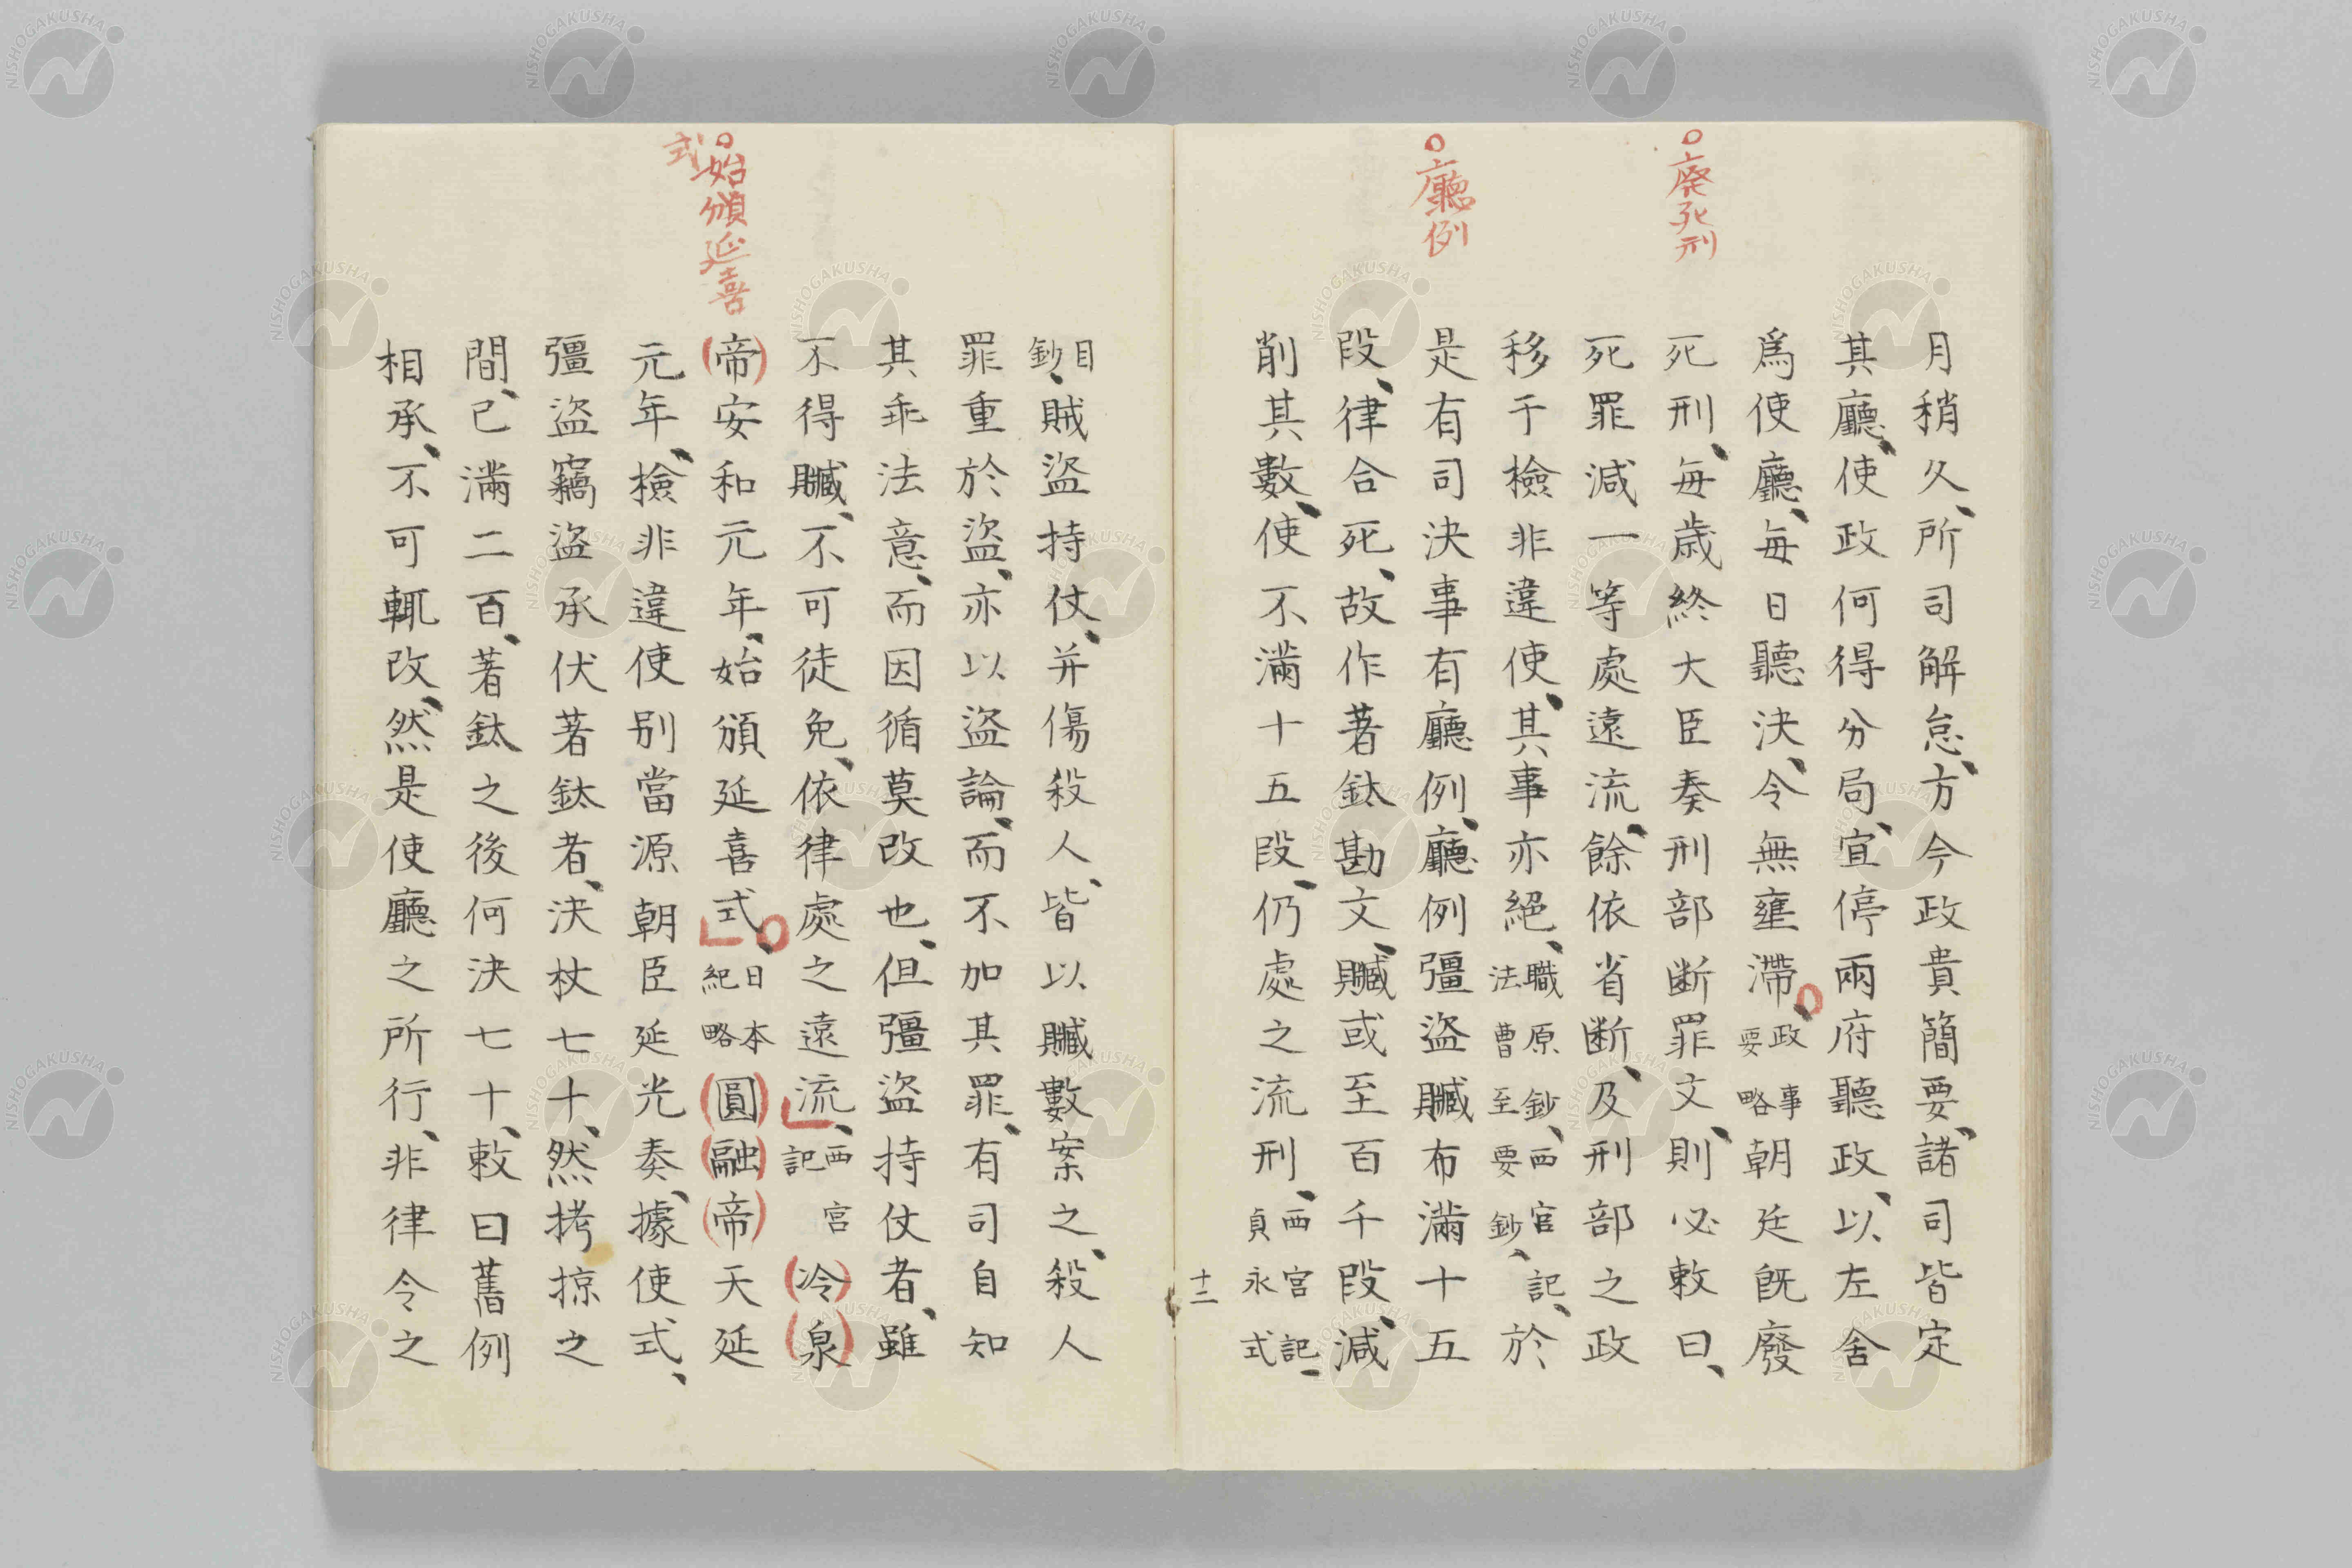 廃死刑
廳例
月稍久、所司解怠、方今政貴簡要、諸司皆定
其廳、使政何得分局、宜停兩府聽政、以左舍
爲使廳、毎日聽決、令無壅滯、政事要略朝廷既廢
死刑、毎歳終大臣奏刑部断罪文、則必敕曰、
死罪減一等處遠流、餘依省断、及刑部之政
移于檢非違使、其事亦絕、職原鈔、西宮記、法曹至要鈔、於
是有司決事有廳例、廳例彊盜贓布滿十五
段、律合死、故作著鈦勘文、贓或至百千段、減
削其數、使不滿十五段、仍處之流刑、西宮記、貞永式
十二
始頒延喜式
目鈔、賊盜持仗、并傷殺人、皆以贓數案之、殺人
罪重於盜、亦以盜論、而不加其罪、有司自知
其乖法意、而因循莫改也、但彊盜持仗者、雖
不得贓、不可徒免、依律處之遠流、西宮記(冷)(泉)
(帝)安和元年、始頒延喜式、日本紀略(圓)(融)(帝)天延
元年、檢非違使別當源朝臣延光奏、據使式、
彊盜竊盜承伏著鈦者、決杖七十、然拷掠之
間、已滿二百、著鈦之後何決七十、敕曰舊例
相承、不可輒改、然是使廳之所行、非律令之
NISHOGAKUSHA